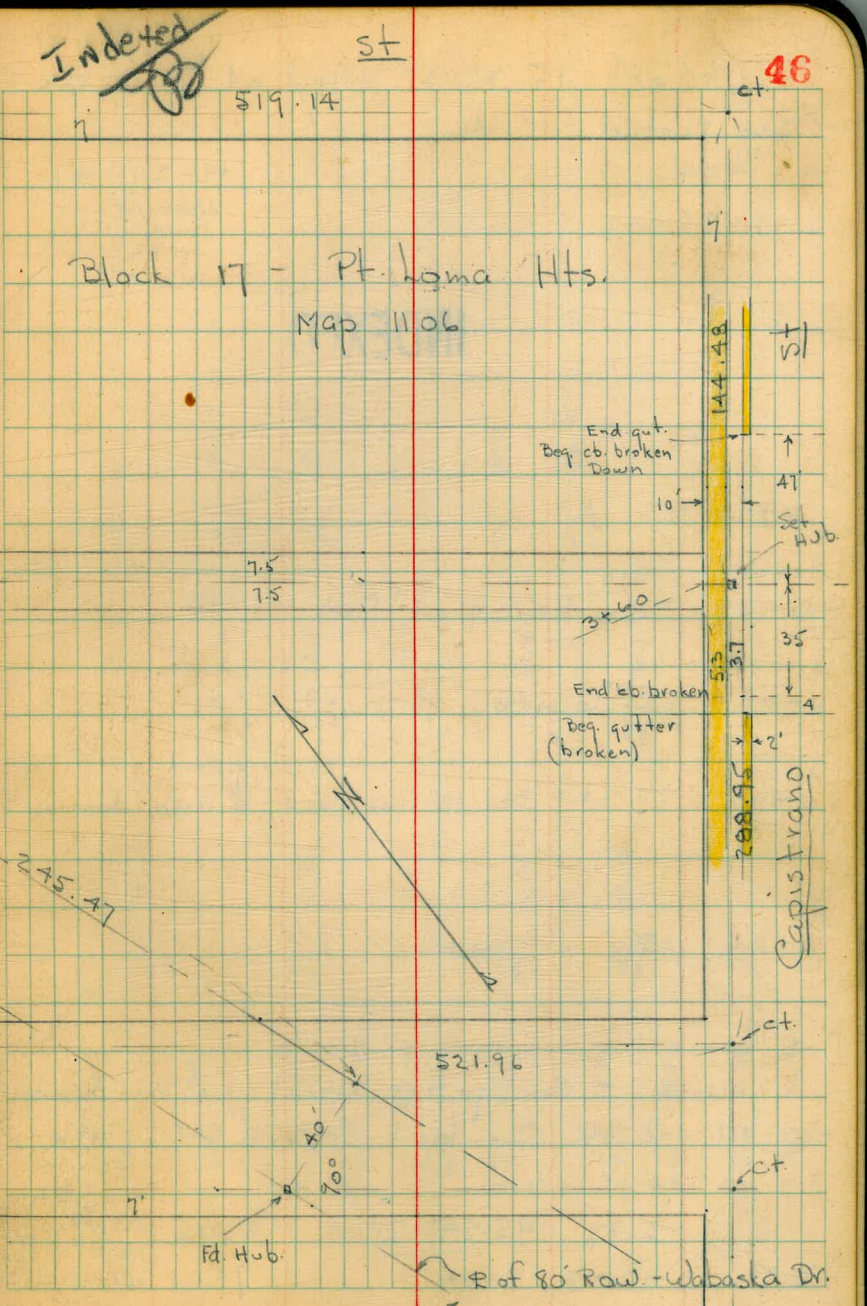 Indexed
St
46
519.14
ct.
7
7
Block 17 - Pt. Loma Hts.
Map 1106
144.48
St
End gut.
Beg. cb. broken
Down
47'
10'
Set
Hub.
7.5
7.5
3x60
35
5.3
3.7
End cb. broken
4
Beg. gutter
(broken)
2'
288.95
Capistrano
N
245.47
ct.
521.96
40'
90°
ct.
7'
Fd. Hub.
℄ of 80' Row. - Wabaska Dr.